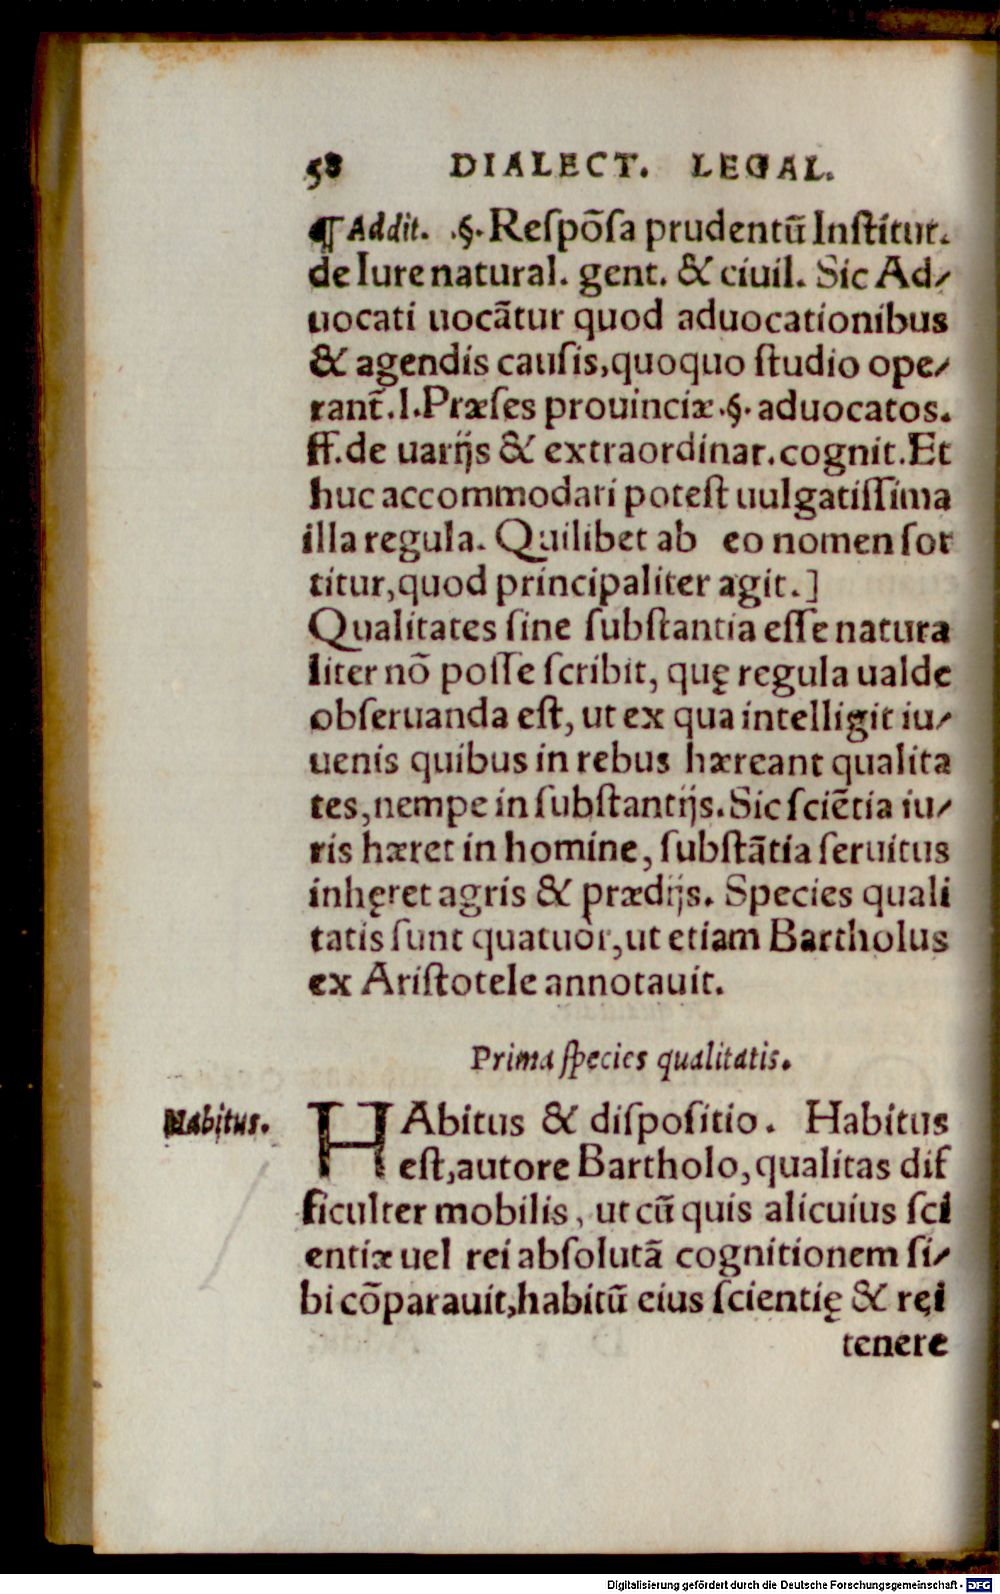 58 DIALECT. LEGAL.
¶ Addit. .§. Reſpõſa prudentũ Inſtitut.
de Iure natural. gent. & ciuil. Sic Ad⸗
uocati uocãtur quod aduocationibus
& agendis cauſis, quoquo ſtudio ope⸗
rant̃. l. Præſes prouinciæ .§. aduocatos.
ff. de uarijs & extraordinar. cognit. Et
huc accommodari poteſt uulgatiſſima
illa regula. Quilibet ab eo nomen ſor
titur, quod principaliter agit.]
Qualitates ſine ſubſtantia eſſe natura
liter nõ poſſe ſcribit, quę regula ualde
obſeruanda eſt, ut ex qua intelligit iu⸗
uenis quibus in rebus hæreant qualita
tes, nempe in ſubſtantijs. Sic ſciẽtia iu⸗
ris hæret in homine, ſubſtãtia ſeruitus
inhęret agris & prædijs. Species quali
tatis ſunt quatuor, ut etiam Bartholus
ex Ariſtotele annotauit.
Prima ſpecies qualitatis.
Habitus.
HAbitus & diſpoſitio. Habitus
eſt, autore Bartholo, qualitas dif
ficulter mobilis, ut cũ quis alicuius ſci
entiæ uel rei abſolutã cognitionem ſi⸗
bi cõparauit, habitũ eius ſcientię & ręi
tenere
Digitalisierung gefördert durch die Deutsche Forschungsgemeinschaft - DFG